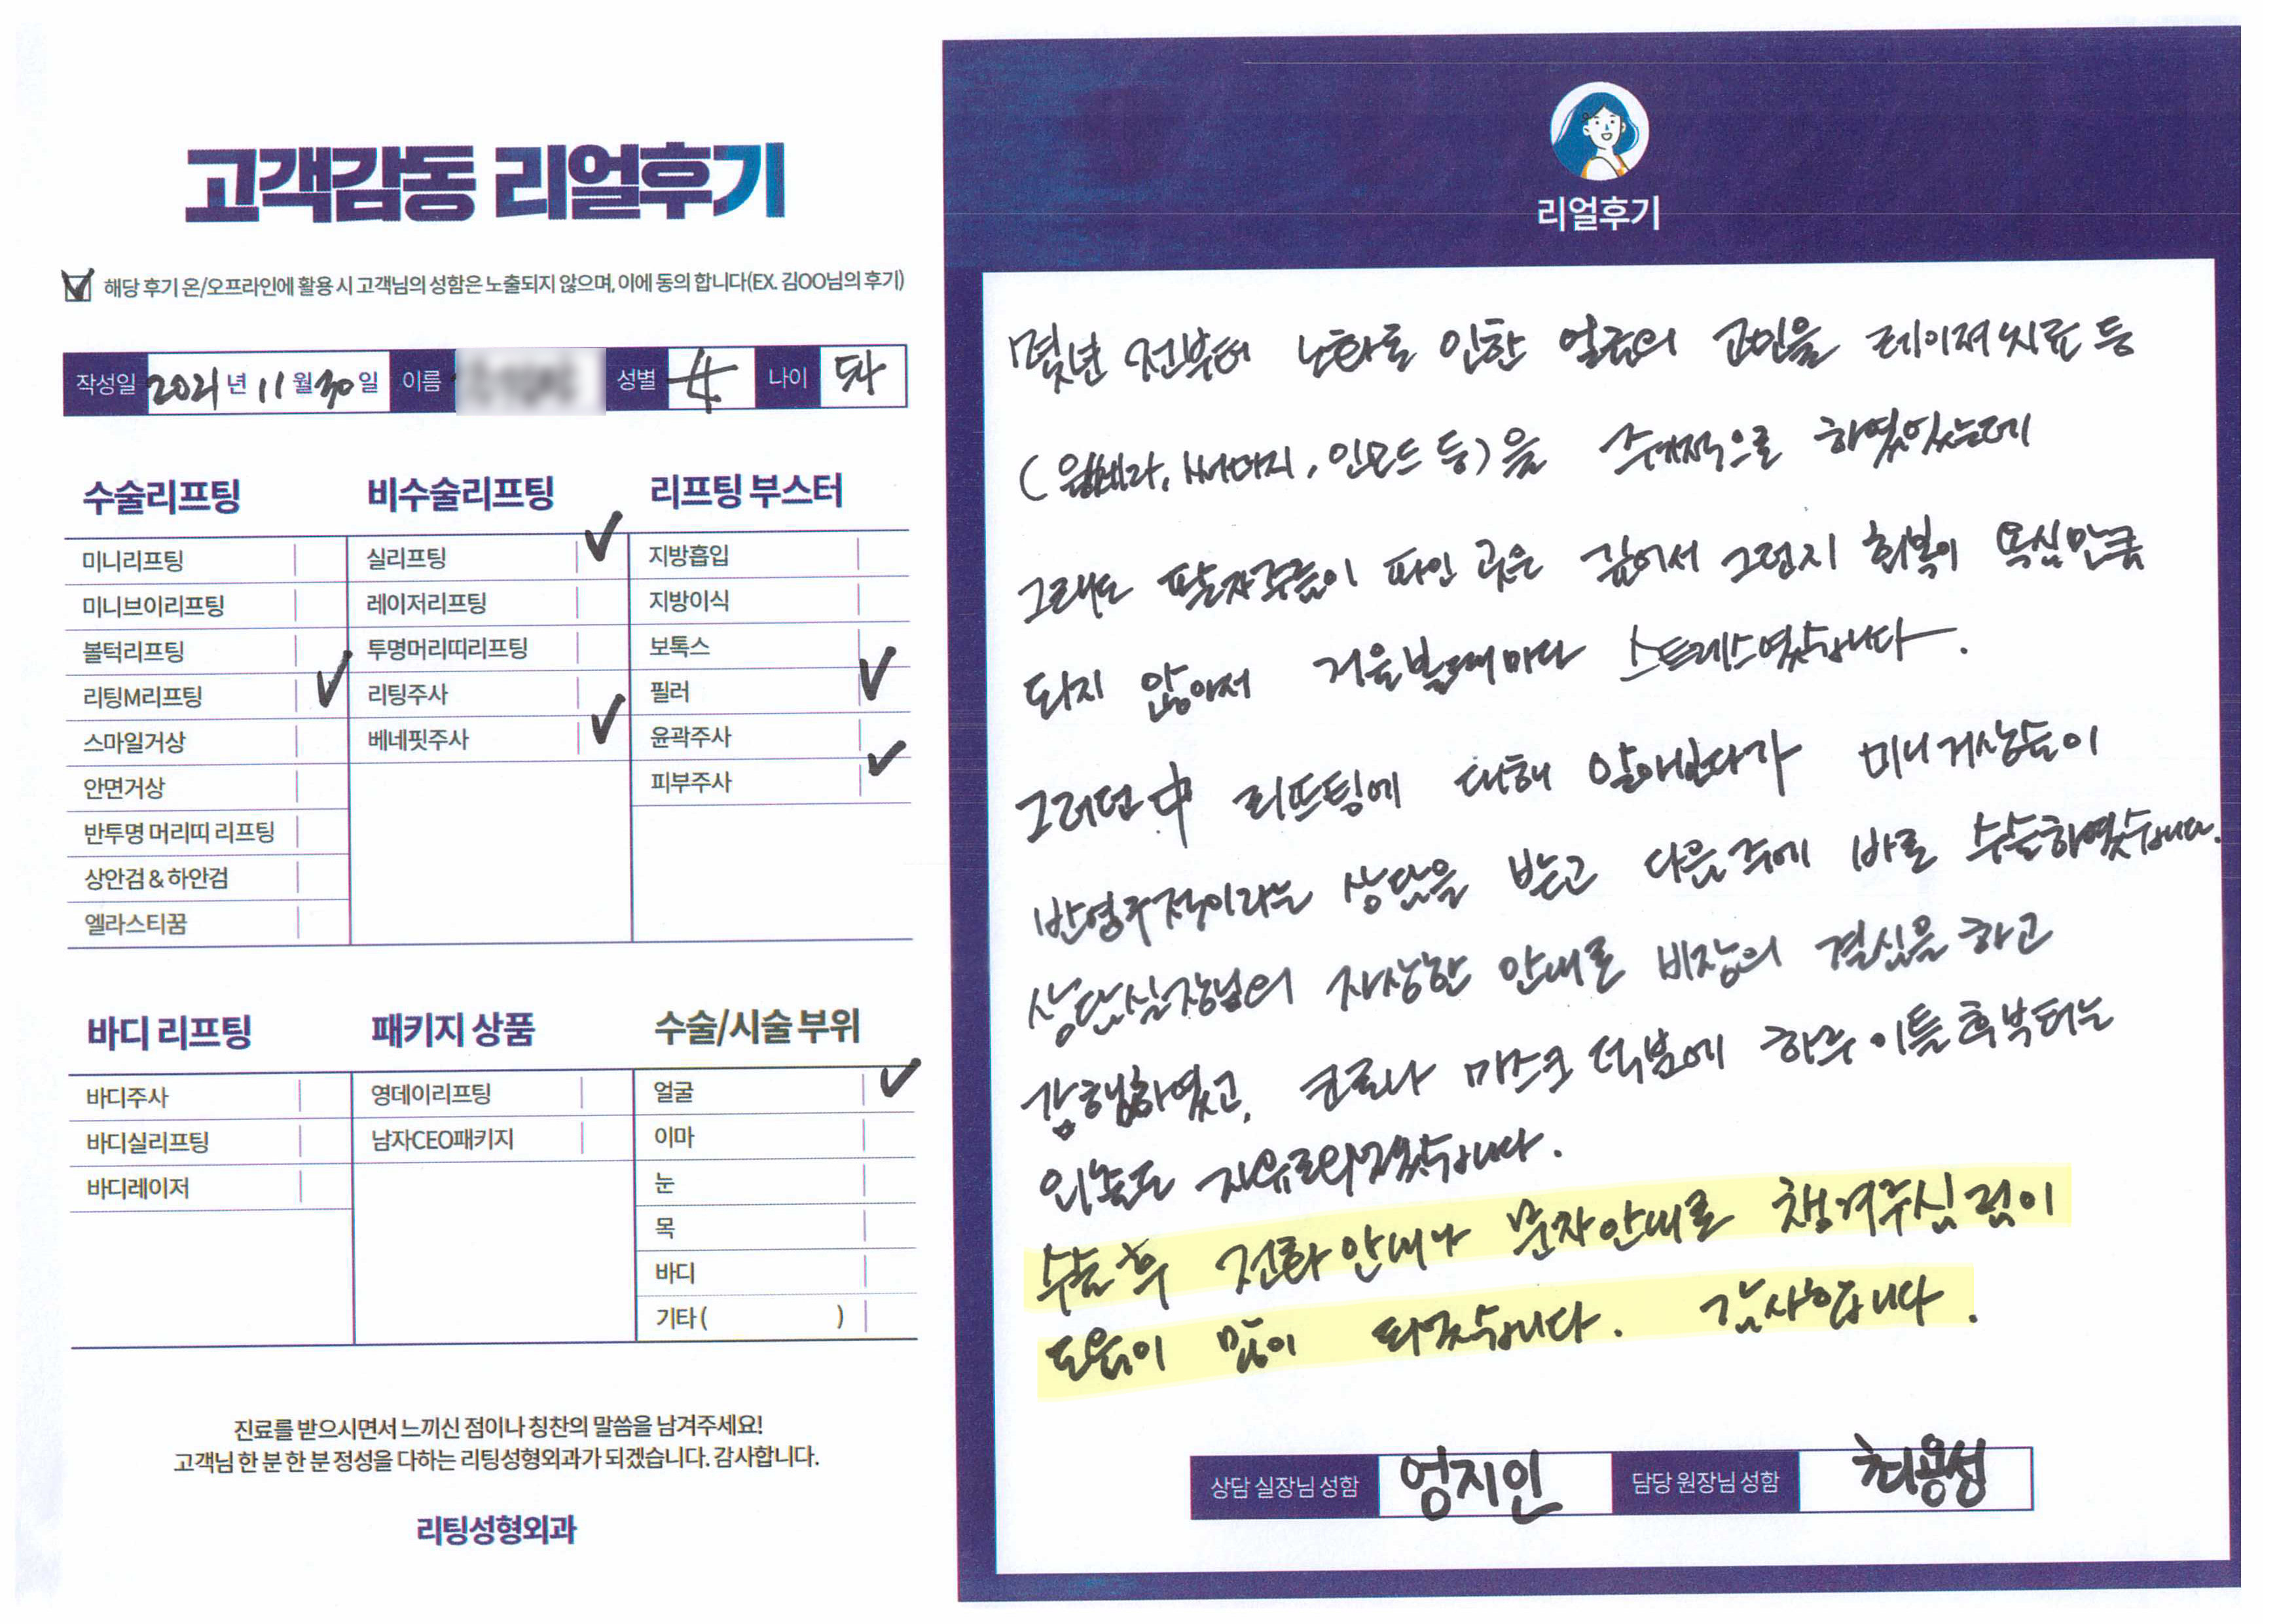 고객감동 리얼후기
해당 후기 온/오프라인에 활용 시 고객님의 성함은 노출되지 않으며, 이에 동의 합니다(EX. 김OO님의 후기)
작성일 2021년 11월 30일 이름 성별 女 나이
수술리프팅
미니리프팅
미니브이리프팅
볼턱리프팅
리팅M리프팅
스마일거상
안면거상
반투명 머리띠 리프팅
상안검 & 하안검
엘라스티꿈
비수술리프팅
실리프팅
레이저리프팅
투명머리띠리프팅
리팅주사
베네핏주사
리프팅 부스터
지방흡입
지방이식
보톡스
필러
윤곽주사
피부주사
바디 리프팅
바디주사
바디실리프팅
바디레이저
패키지 상품
영데이리프팅
남자CEO패키지
수술/시술 부위
얼굴
이마
눈
목
바디
기타 ( )
진료를 받으시면서 느끼신 점이나 칭찬의 말씀을 남겨주세요!
고객님 한 분 한 분 정성을 다하는 리팅성형외과가 되겠습니다. 감사합니다.
리팅성형외과
리얼후기
몇년 전부터 노화로 인한 얼굴의 고민을 레이져치료 등
(울쎄라, 써마지, 인모드 등)을 수차적으로 하였었는데
그래도 팔자주름이 파인 곳은 깊어서 그런지 회복이 욕심만큼
되지 않아서 거울볼때마다 스트레스였습니다.
그러던 中 리프팅에 대해 알아보다가 미니거상술이
반영구적이라는 상담을 받고 다음주에 바로 수술하였습니다.
상담실장님의 자상한 안내로 비장의 결심을 하고
감행하였고, 코로나 마스크 덕분에 하루 이틀 후부터는
외출도 자유로워졌습니다.
수술 후 전화안내나 문자안내로 챙겨주신 점이
도움이 많이 되었습니다. 감사합니다.
상담 실장님 성함 엄지인 담당 원장님 성함 최용성